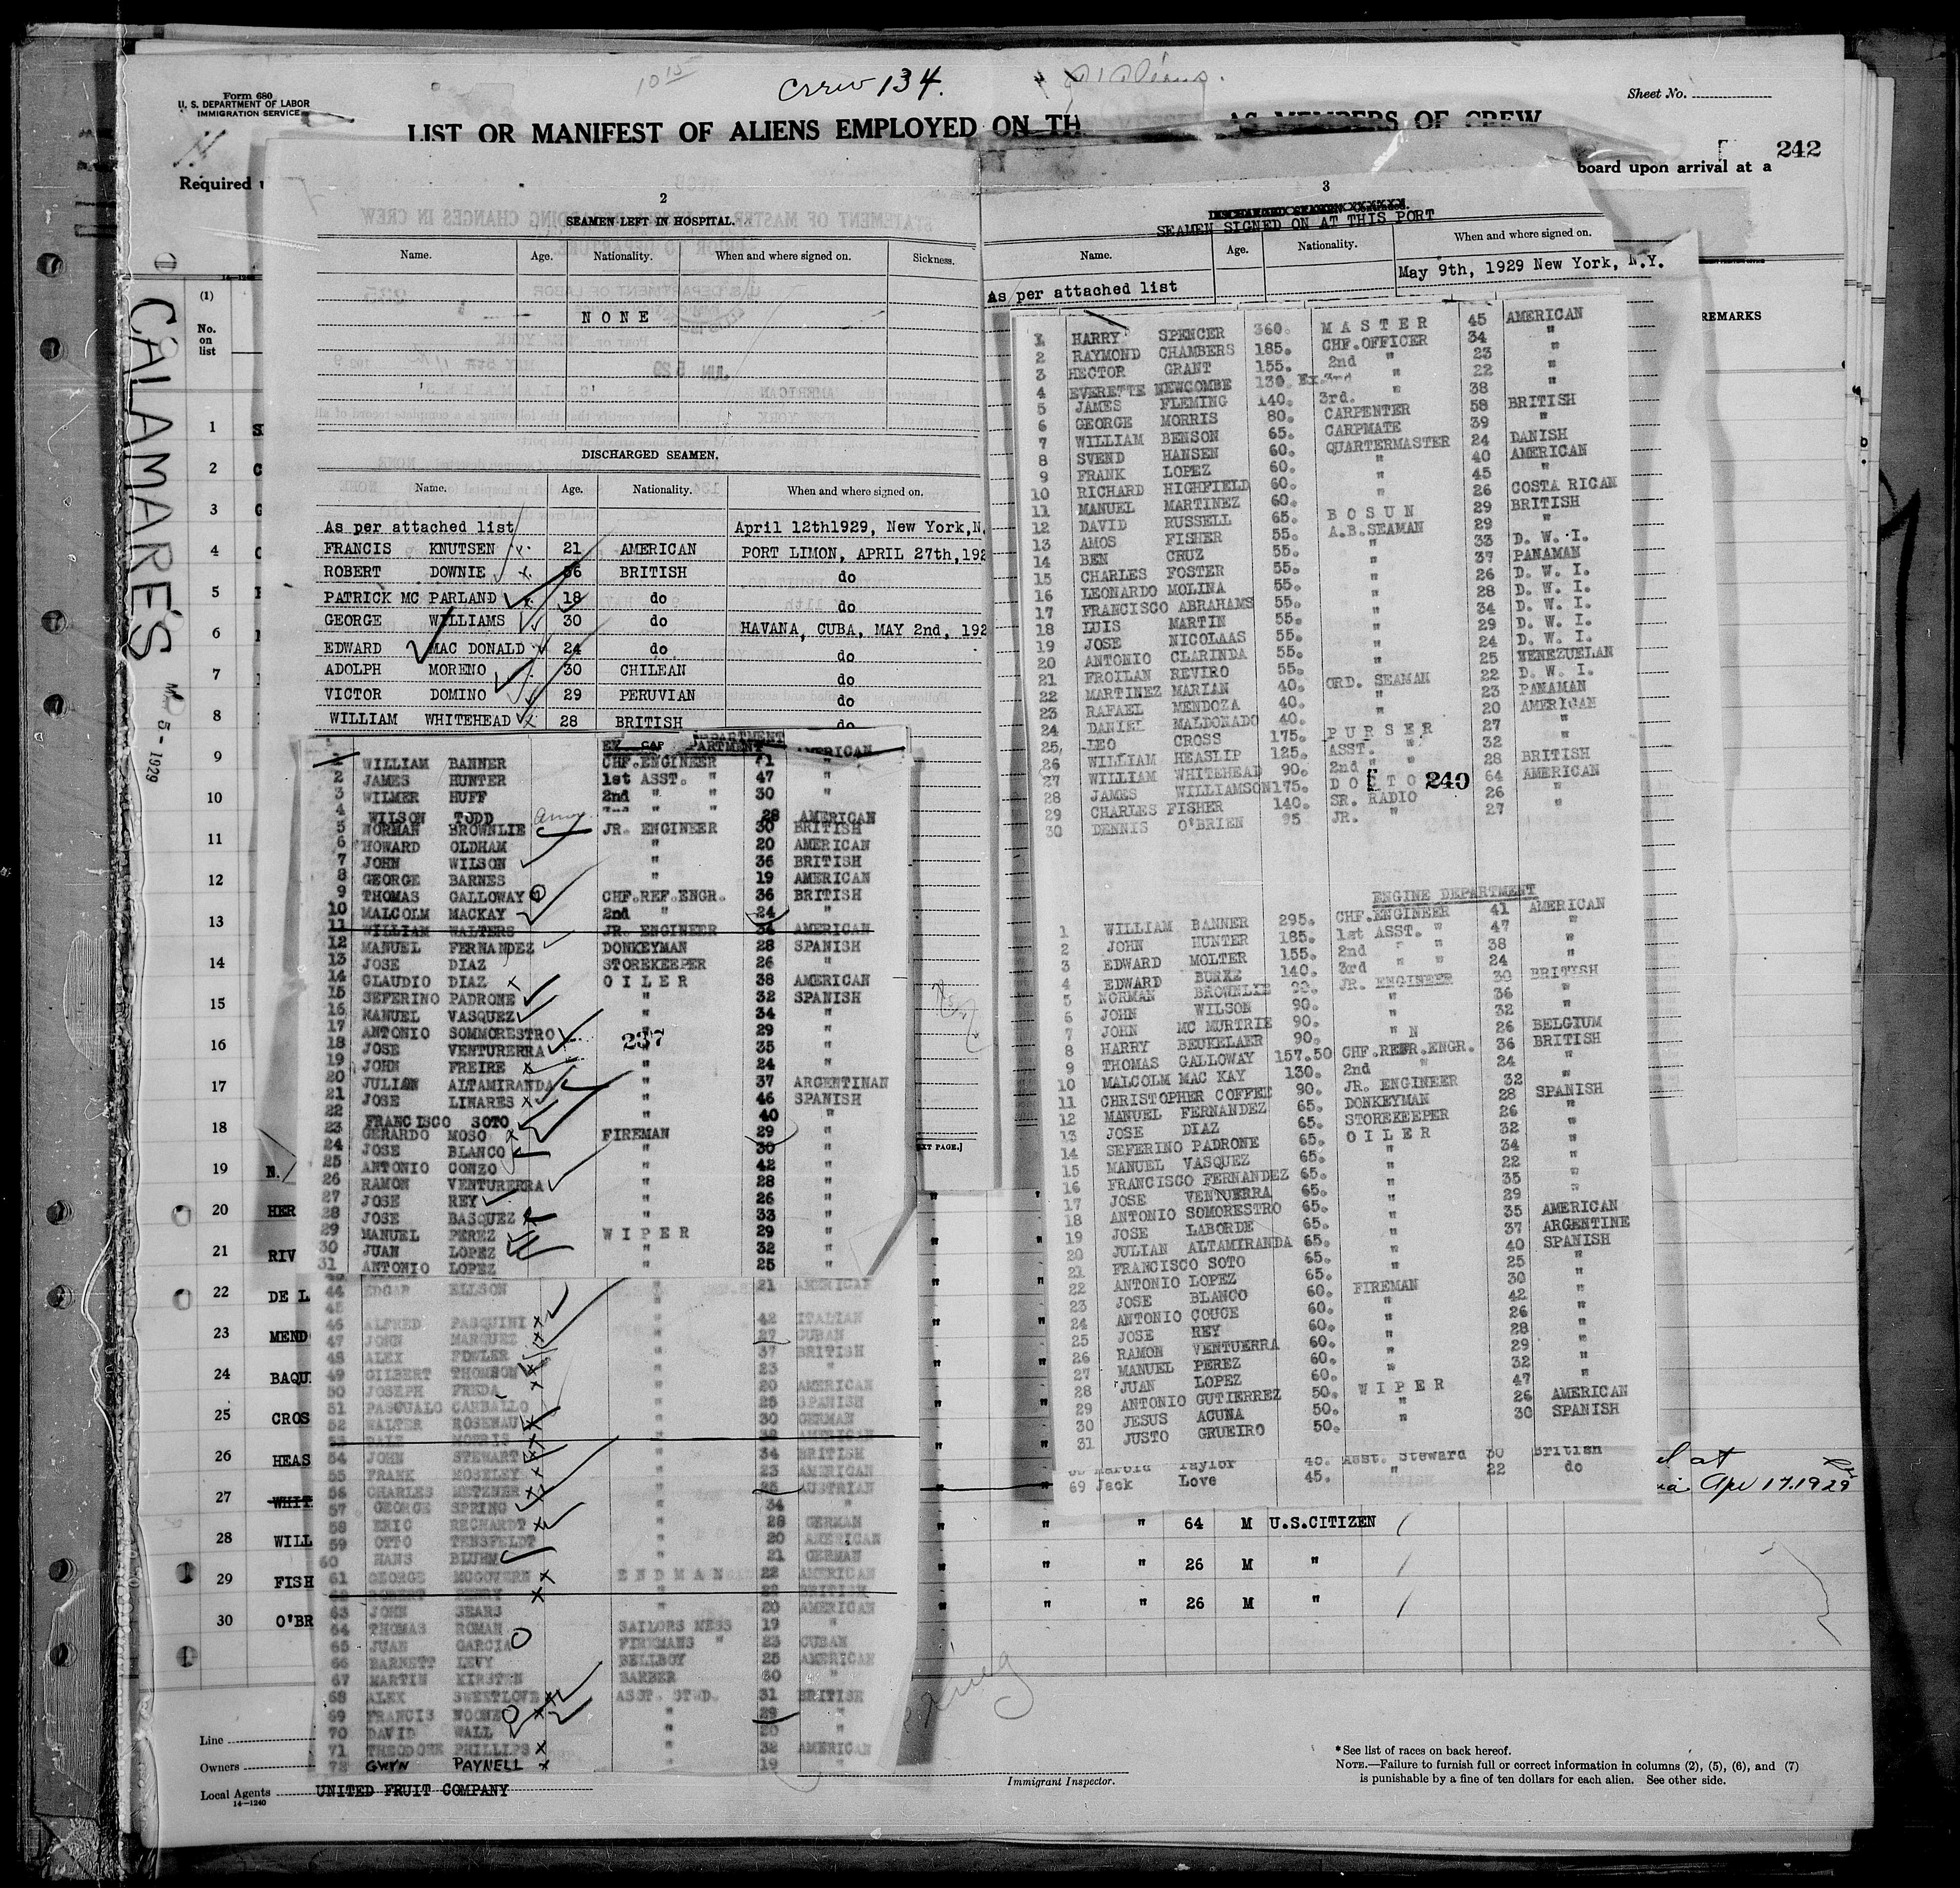 Form 680
U. S. DEPARTMENT OF LABOR
IMMIGRATION SERVICE
Crew 134.
Sheet No.
LIST OR MANIFEST OF ALIENS EMPLOYED ON TH AS MEMBERS OF CREW
242
Required
board upon arrival at a
CALAMARE'S
5-1929
(1)
No. on list
REMARKS
2
SEAMEN LEFT IN HOSPITAL.
Name. Age. Nationality. When and where signed on. Sickness.
NONE
DISCHARGED SEAMEN.
Name. Age. Nationality. When and where signed on.
As per attached list April 12th1929, New York,N.
FRANCIS KNUTSEN 21 AMERICAN PORT LIMON, APRIL 27th,192
ROBERT DOWNIE 36 BRITISH do
PATRICK MC PARLAND 18 do do
GEORGE WILLIAMS 30 do HAVANA, CUBA, MAY 2nd, 192
EDWARD MAC DONALD 24 do do
ADOLPH MORENO 30 CHILEAN do
VICTOR DOMINO 29 PERUVIAN do
WILLIAM WHITEHEAD 28 BRITISH do
1 WILLIAM BANNER CHF.ENGINEER 41 "
2 JAMES HUNTER 1st ASST. " 47 "
3 WILMER HUFF 2nd " " 30 "
4 WILSON TJDD 28 AMERICAN
5 NORMAN BROWNLIE JR. ENGINEER 30 BRITISH
6 HOWARD OLDHAM " 20 AMERICAN
7 JOHN WILSON " 36 BRITISH
8 GEORGE BARNES " 19 AMERICAN
9 THOMAS GALLOWAY CHF.REF.ENGR. 36 BRITISH
10 MALCOLM MACKAY 2nd " 24 "
11 WILLIAM WALTERS JR. ENGINEER 34 AMERICAN
12 MANUEL FERNANDEZ DONKEYMAN 28 SPANISH
13 JOSE DIAZ STOREKEEPER 26 "
14 CLAUDIO DIAZ OILER 38 AMERICAN
15 SEFERINO PADRONE " 32 SPANISH
16 MANUEL VASQUEZ " 34 "
17 ANTONIO SOMMORESTRO " 29 "
237
18 JOSE VENTURERRA " 35 "
19 JOHN FREIRE " 24 "
20 JULIAN ALTAMIRANDA " 37 ARGENTINAN
21 JOSE LINARES " 46 SPANISH
22 FRANCISCO SOTO " 40 "
23 GERARDO MOSO FIREMAN 29 "
24 JOSE BLANCO " 30 "
25 ANTONIO CONZO " 42 "
26 RAMON VENTURERRA " 28 "
27 JOSE REY " 26 "
28 JOSE BASQUEZ " 33 "
29 MANUEL PEREZ WIPER 29 "
30 JUAN LOPEZ " 32 "
31 ANTONIO LOPEZ " 25 "
44 EDGAR ELLSON " 21 AMERICAN
45
46 ALFRED PASQUINI " 42 ITALIAN
47 JOHN MARQUEZ " 27 CUBAN
48 ALEX FOWLER " 37 BRITISH
49 GILBERT THOMSON " 23 "
50 JOSEPH FREDA " 20 AMERICAN
51 PASCUALO CARBALLO " 25 SPANISH
52 WALTER ROSENAU " 30 GERMAN
53 DALE MORRIS " AMERICAN
54 JOHN STEWART " 34 BRITISH
55 FRANK MOSELEY " 23 AMERICAN
56 CHARLES METZNER " 25 AUSTRIAN
57 GEORGE SPRING " 34 "
58 ERIC RECHARDT " 28 GERMAN
59 OTTO TENSFELDT " 20 AMERICAN
60 HANS BLUHM " 21 GERMAN
61 GEORGE MCGOVERN ENDMAN 22 AMERICAN
62 ROBERT PERRY " 22 BRITISH
63 JOHN SEARS " 20 AMERICAN
64 THOMAS ROMAN SAILORS MESS 19 "
65 JUAN GARCIA FIREMANS " 23 CUBAN
66 BARNETT LEVY BELLBOY 25 AMERICAN
67 MARTIN KIRSTEN BARBER 60 "
68 ALEX SWEETLOVE ASST. STWD. 31 BRITISH
69 FRANCIS NOONE " 29 "
70 DAVID WALL " 20 "
71 THEODORE PHILLIPS " 32 AMERICAN
72 GWYN PAYNELL " 19 "
3
SEAMEN SIGNED ON AT THIS PORT
Name. Age. Nationality. When and where signed on.
As per attached list May 9th, 1929 New York, N.Y.
1 HARRY SPENCER 360. MASTER 45 AMERICAN
2 RAYMOND CHAMBERS 185. CHF.OFFICER 34 "
3 HECTOR GRANT 155. 2nd " 23 "
4 EVERETTE NEWCOMBE 130. Ex.3rd " 22 "
5 JAMES FLEMING 140. 3rd. " 38 "
6 GEORGE MORRIS 80. CARPENTER 58 BRITISH
7 WILLIAM BENSON 65. CARPMATE 39 "
8 SVEND HANSEN 60. QUARTERMASTER 24 DANISH
9 FRANK LOPEZ 60. " 40 AMERICAN
10 RICHARD HIGHFIELD 60. " 45 "
11 MANUEL MARTINEZ 60. " 26 COSTA RICAN
12 DAVID RUSSELL 65. BOSUN 29 BRITISH
13 AMOS FISHER 55. A.B.SEAMAN 29 "
14 BEN CRUZ 55. " 33 D. W. I.
15 CHARLES FOSTER 55. " 37 PANAMAN
16 LEONARDO MOLINA 55. " 26 D. W. I.
17 FRANCISCO ABRAHAMS 55. " 28 D. W. I.
18 LUIS MARTIN 55. " 34 D. W. I.
19 JOSE NICOLAAS 55. " 29 D. W. I.
20 ANTONIO CLARINDA 55. " 24 D. W. I.
21 FROILAN REVIRO 55. " 25 VENEZUELAN
22 MARTINEZ MARIAN 40. ORD. SEAMAN 22 D. W. I.
23 RAFAEL MENDOZA 40. " 23 PANAMAN
24 DANIEL MALDONADO 40. " 20 AMERICAN
25 LEO CROSS 175. PURSER 27 "
26 WILLIAM HEASLIP 125. ASST. " 32 "
27 WILLIAM WHITEHEAD 90. 2nd " " 28 BRITISH
28 JAMES WILLIAMSON 175. 64 AMERICAN
240
29 CHARLES FISHER 140. SR. RADIO 26 "
30 DENNIS O'BRIEN 95 JR. " 27 "
ENGINE DEPARTMENT
1 WILLIAM BANNER 295. CHF.ENGINEER 41 AMERICAN
2 JOHN HUNTER 185. 1st ASST. " 47 "
3 EDWARD MOLTER 155. 2nd " " 38 "
4 EDWARD BURKE 140. 3rd " " 24 "
5 NORMAN BROWNLIE 90. JR. ENGINEER 30 BRITISH
6 JOHN WILSON 90. " 36 "
7 JOHN MC MURTRIE 90. " 32 "
8 HARRY BEUKELAER 90. " N 26 BELGIUM
9 THOMAS GALLOWAY 157.50 CHF.REFR.ENGR. 36 BRITISH
10 MALCOLM MAC KAY 130. 2nd " 24 "
11 CHRISTOPHER COFFEE 90. JR. ENGINEER 32 "
12 MANUEL FERNANDEZ 65. DONKEYMAN 28 SPANISH
13 JOSE DIAZ 65. STOREKEEPER 26 "
14 SEFERINO PADRONE 65. OILER 32 "
15 MANUEL VASQUEZ 65. " 34 "
16 FRANCISCO FERNANDEZ 65. " 22 "
17 JOSE VENTUERRA 65. " 35 "
18 ANTONIO SOMORESTRO 65. " 29 "
19 JOSE LABORDE 65. " 35 AMERICAN
20 JULIAN ALTAMIRANDA 65. " 37 ARGENTINE
21 FRANCISCO SOTO 65. " 40 SPANISH
22 ANTONIO LOPEZ 65. " 25 "
23 JOSE BLANCO 60. FIREMAN 30 "
24 ANTONIO COUCE 60. " 42 "
25 JOSE REY 60. " 26 "
26 RAMON VENTUERRA 60. " 28 "
27 MANUEL PEREZ 60. " 29 "
28 JUAN LOPEZ 60. " 32 "
29 ANTONIO GUTIERREZ 50. WIPER 47 "
30 JESUS ACUNA 50. " 26 AMERICAN
31 JUSTO GRUEIRO 50. " 30 SPANISH
Harold Taylor 45. Asst. Steward 30 British
69 Jack Love 45. " 22 do
1
2
3
4
5
6
7
8
9
10
11
12
13
14
15
16
17
18
19 N.
20 HER
21 RIV
22 DE L
23 MEND
24 BAQU
25 CROS
26 HEAS
27 WHIT Apr 17.1929
28 WILL " " " 64 M U.S.CITIZEN
29 FISH " " " 26 M "
30 O'BR " " " 26 M "
Line
Owners
Local Agents UNITED FRUIT COMPANY
14—1240
Immigrant Inspector.
* See list of races on back hereof.
NOTE.—Failure to furnish full or correct information in columns (2), (5), (6), and (7)
is punishable by a fine of ten dollars for each alien. See other side.